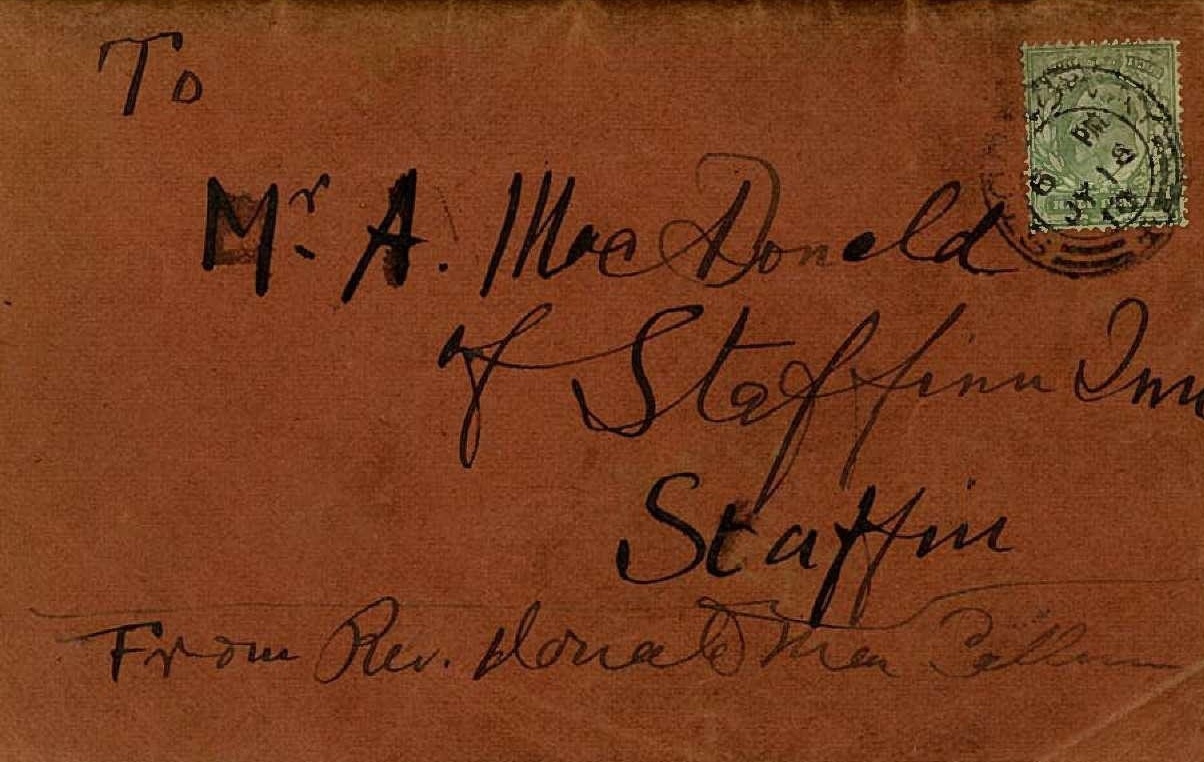 To
Mr. A. MacDonald
of Staffinn Inn
Staffin
From Rev. Donald MacCallum